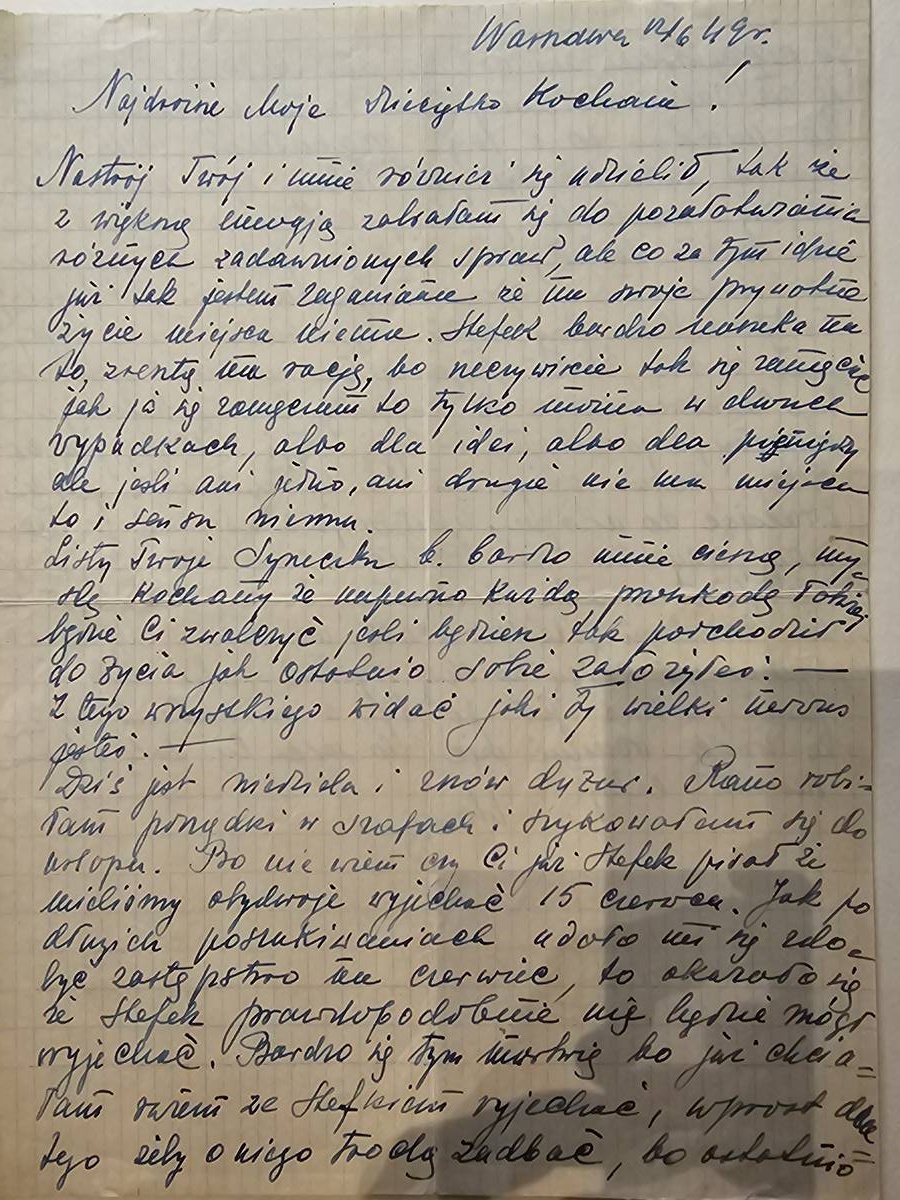 Warszawa 12/6 49r.
Najdroższe Moje Dziecątko Kochane!
Nastrój Twój i mnie również się udzielił, tak że
z większą energją zabrałam się do pozałatwiania
różnych zadawnionych spraw, ale co za tym idzie
już tak jestem zaganiana że na swoje prywatne
życie miejsca niema. Stefek bardzo narzeka na
to, zresztą ma rację, bo rzeczywiście tak się zamęczać
jak ja się zamęczam to tylko można w dwuch
wypadkach, albo dla idei, albo dla pieniędzy
ale jeśli ani jedno, ani drugie nie ma miejsca
to i sensu niema.
Listy Twoje Syneczku b. bardzo mnie cieszą, my-
ślę Kochany że napewno każdą przeszkodę łatwiej
będzie Ci zwalczyć jeśli będziesz tak podchodził
do życia jak ostatnio sobie założyłeś. —
Z tego wszystkiego widać jaki Ty wielki nerwus
jesteś. —
Dziś jest niedziela i znów dyżur. Rano robi-
łam porządki w szafach i szykowałam się do
urlopu. Bo nie wiem czy Ci już Stefek pisał że
mieliśmy obydwoje wyjechać 15 czerwca. Jak po
długich poszukiwaniach udało mi się zdo-
być zastępstwo na czerwiec, to okazało się
że Stefek prawdopodobnie nie będzie mógł
wyjechać. Bardzo się tym martwię bo już chcia-
łam razem ze Stefkiem wyjechać, wprost dla
tego żeby o niego trochę zadbać, bo ostatnio